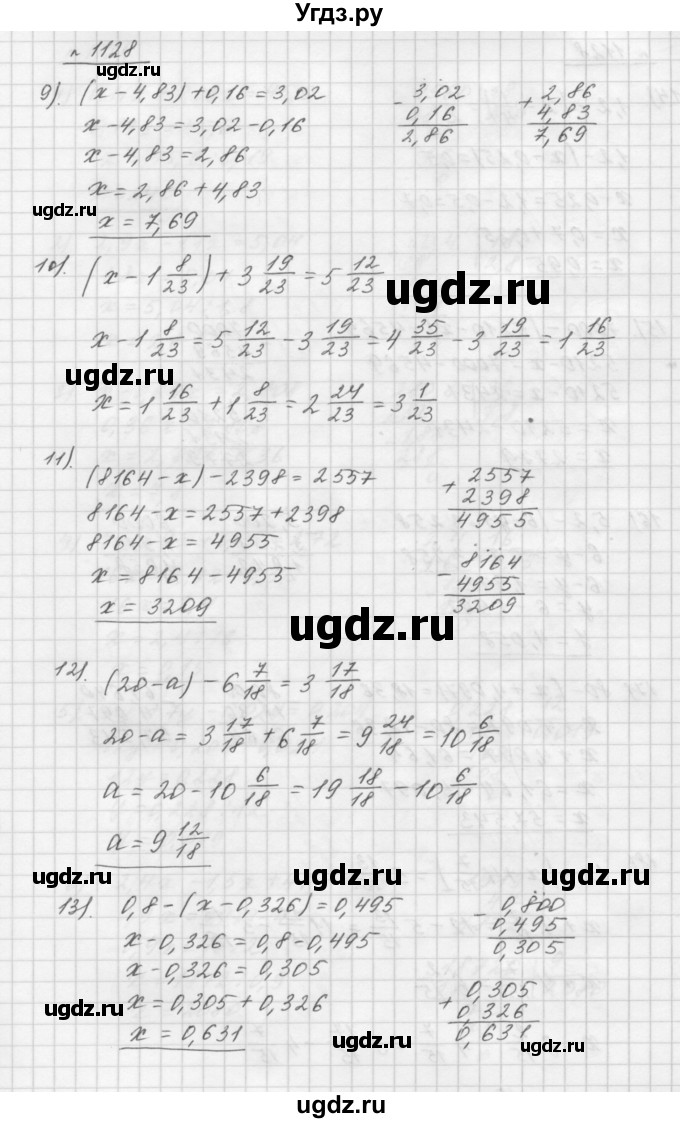 Угдз.ру
n 1128
9). (x - 4,83) + 0,16 = 3,02
x - 4,83 = 3,02 - 0,16
x - 4,83 = 2,86
x = 2,86 + 4,83
x = 7,69
- 3,02
0,16
2,86
+ 2,86
4,83
7,69
ugdz.ru
ugdz.ru
10). (x - 1 8/23) + 3 19/23 = 5 12/23
ugdz.ru
x - 1 8/23 = 5 12/23 - 3 19/23 = 4 35/23 - 3 19/23 = 1 16/23
ugdz.ru
x = 1 16/23 + 1 8/23 = 2 24/23 = 3 1/23
11). (8164 - x) - 2398 = 2557
8164 - x = 2557 + 2398
8164 - x = 4955
x = 8164 - 4955
x = 3209
+ 2557
2398
4955
- 8164
4955
3209
ugdz.ru
ugdz.ru
12). (20 - a) - 6 7/18 = 3 17/18
20 - a = 3 17/18 + 6 7/18 = 9 24/18 = 10 6/18
a = 20 - 10 6/18 = 19 18/18 - 10 6/18
a = 9 12/18
ugdz.ru
ugdz.ru
13). 0,8 - (x - 0,326) = 0,495
x - 0,326 = 0,8 - 0,495
x - 0,326 = 0,305
x = 0,305 + 0,326
x = 0,631
- 0,800
0,495
0,305
+ 0,305
0,326
0,631
ugdz.ru
ugdz.ru
ugdz.ru